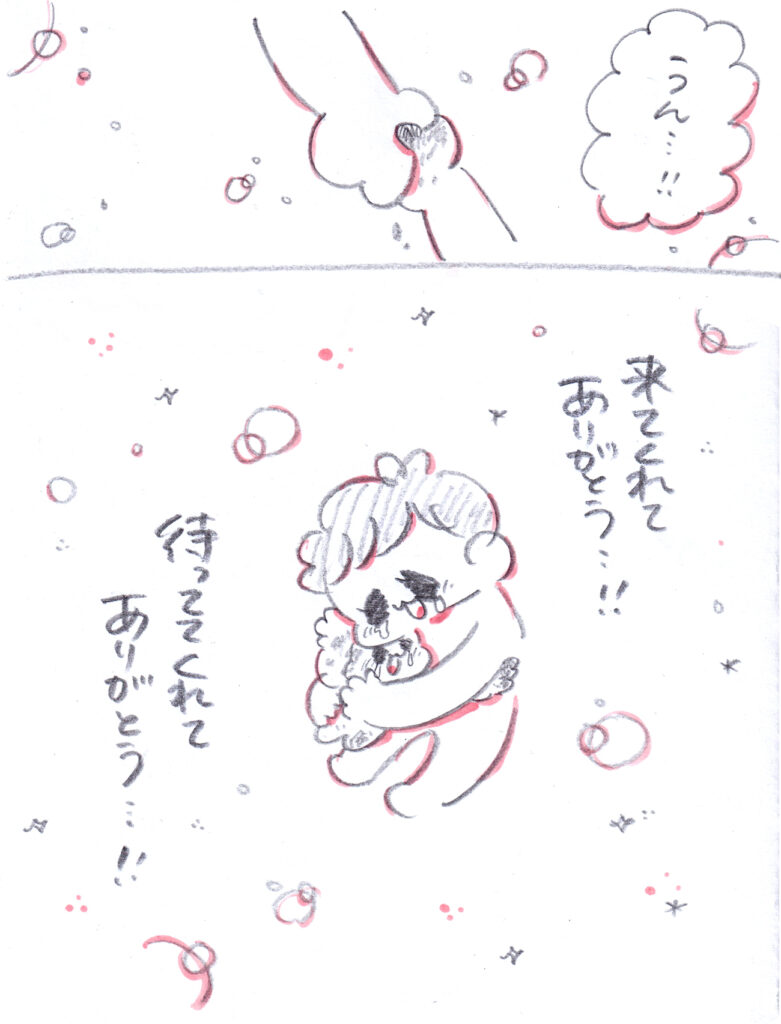 うん…!!
来てくれて
ありがとう…!!
待っててくれて
ありがとう…!!